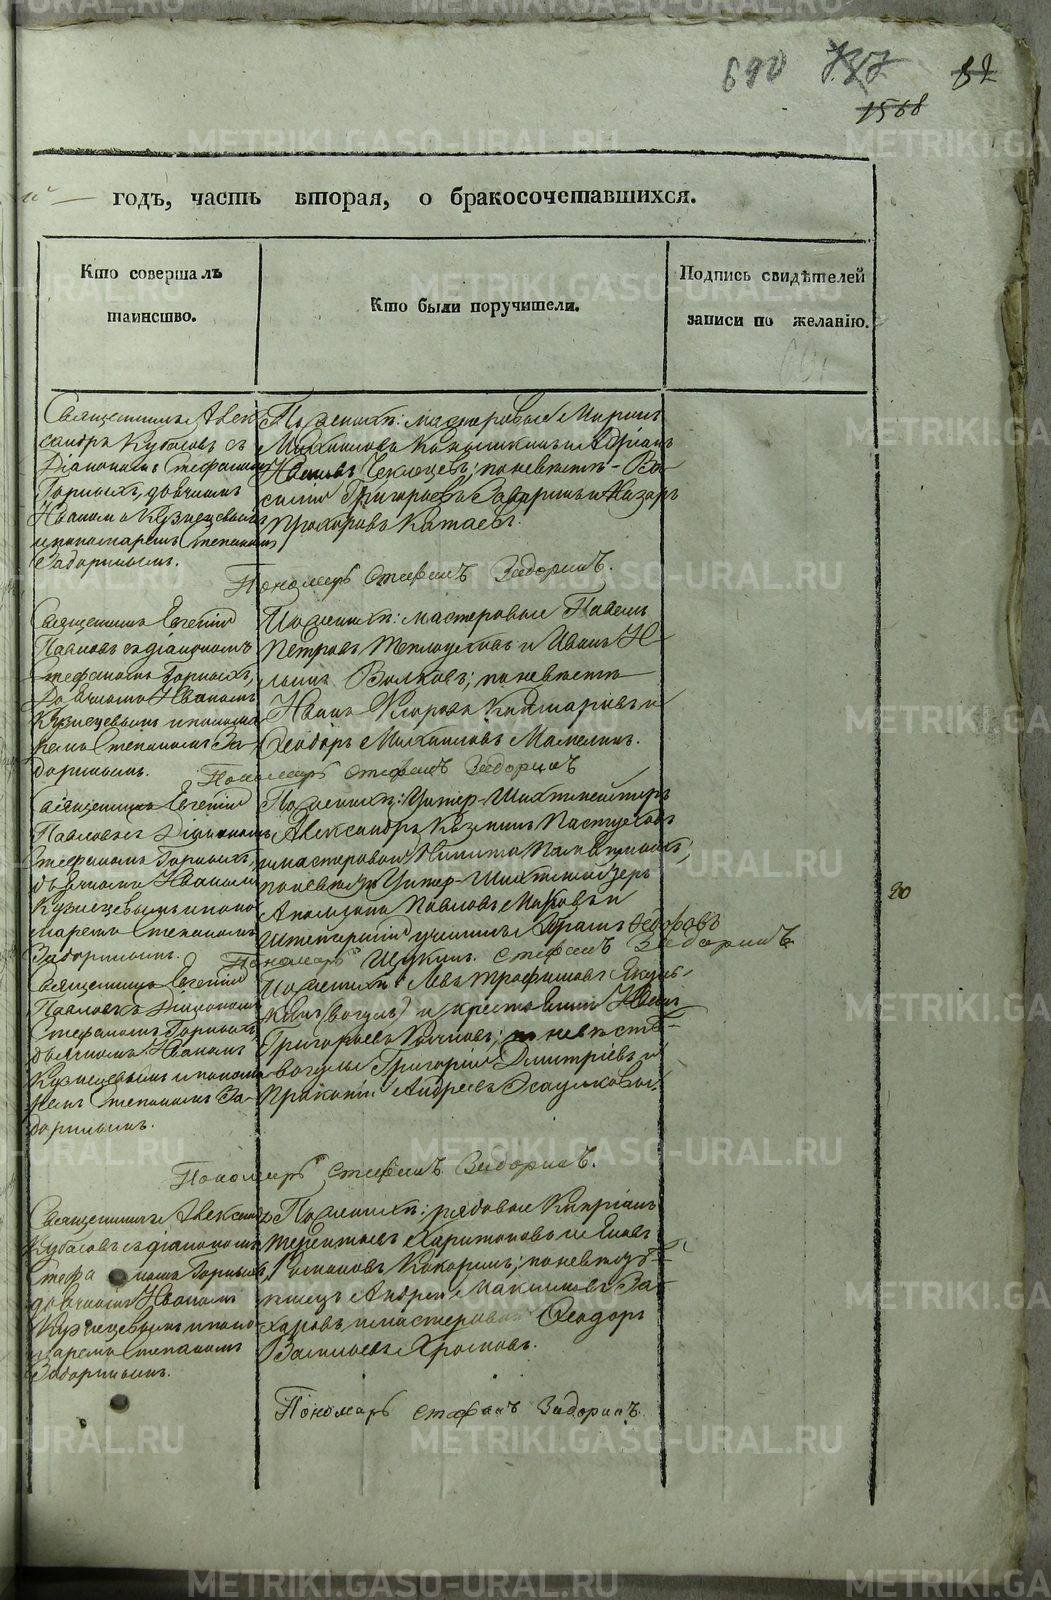 690 737 82
1568
годъ, часть вторая, о бракосочетавшихся.
Кто совершалъ
таинство.
Кто были поручители.
Подпись свидѣтелей
записи по желанію.
Священникъ Алек-
сандръ Кубасовъ съ
Діакономъ Стефаномъ
Горныхъ, дьячкомъ
Иваномъ Кузнецевымъ
и пономаремъ Степаномъ
Задоринымъ.
По женихѣ: мастеровые Миронъ
Михайловъ и Адріанъ
Ивановъ по невѣстѣ - Ва-
силій Григорьевъ и Назаръ
Прохоровъ Катаевъ.
Пономарь Стефанъ Задоринъ.
Священникъ Евгеній
Павловъ съ діакономъ
Стефаномъ Горныхъ,
дьячкомъ Иваномъ
Кузнецевымъ и понома-
ремъ Степаномъ За-
доринымъ.
По женихѣ: мастеровые Павелъ
Петровъ Теплоуховъ и Иванъ И-
льинъ Волковъ; по невѣстѣ
Иванъ и
Ѳеодоръ Михайловъ Мамлинъ.
Пономарь Стефанъ Задоринъ
Священникъ Евгеній
Павловъ съ Діакономъ
Стефаномъ Горныхъ,
дьячкомъ Иваномъ
Кузнецевымъ и поно-
маремъ Степаномъ
Задоринымъ.
По женихѣ: Унтер-Шихтмейстеръ
Александръ Козминъ Пастуховъ
и мастеровой Никита
по невѣстѣ Унтер-Шихтмейстеръ
Павловъ и
учитель Ѳедоровъ
Щукинъ.
Пономарь Стефанъ Задоринъ
20
Священникъ Евгеній
Павловъ съ Діакономъ
Стефаномъ Горныхъ
дьячкомъ Иваномъ
Кузнецевымъ и понома-
ремъ Степаномъ За-
доринымъ.
По женихѣ: Левъ Трофимовъ Якуш-
кинъ (вогулъ) и крестьянинъ Иванъ
Григорьевъ по невѣстѣ -
вогулы Григорій Дмитріевъ и
Прокопій Андреевъ Эсаулковы.
Пономарь Стефанъ Задоринъ.
Священникъ Александръ
Кубасовъ съ діакономъ
Стефаномъ Горныхъ,
дьячкомъ Иваномъ
Кузнецевымъ и поно-
маремъ Степаномъ
Задоринымъ.
По женихѣ: рядовые Кипріанъ
Терентьевъ Харитоновъ и Яковъ
Романовъ Кокоринъ; по невѣстѣ
Андрей Максимовъ За-
харовъ, и мастеровой Ѳеодоръ
Васильевъ Хромовъ.
Пономарь Стефанъ Задоринъ.
METRIKI.GASO-URAL.RU